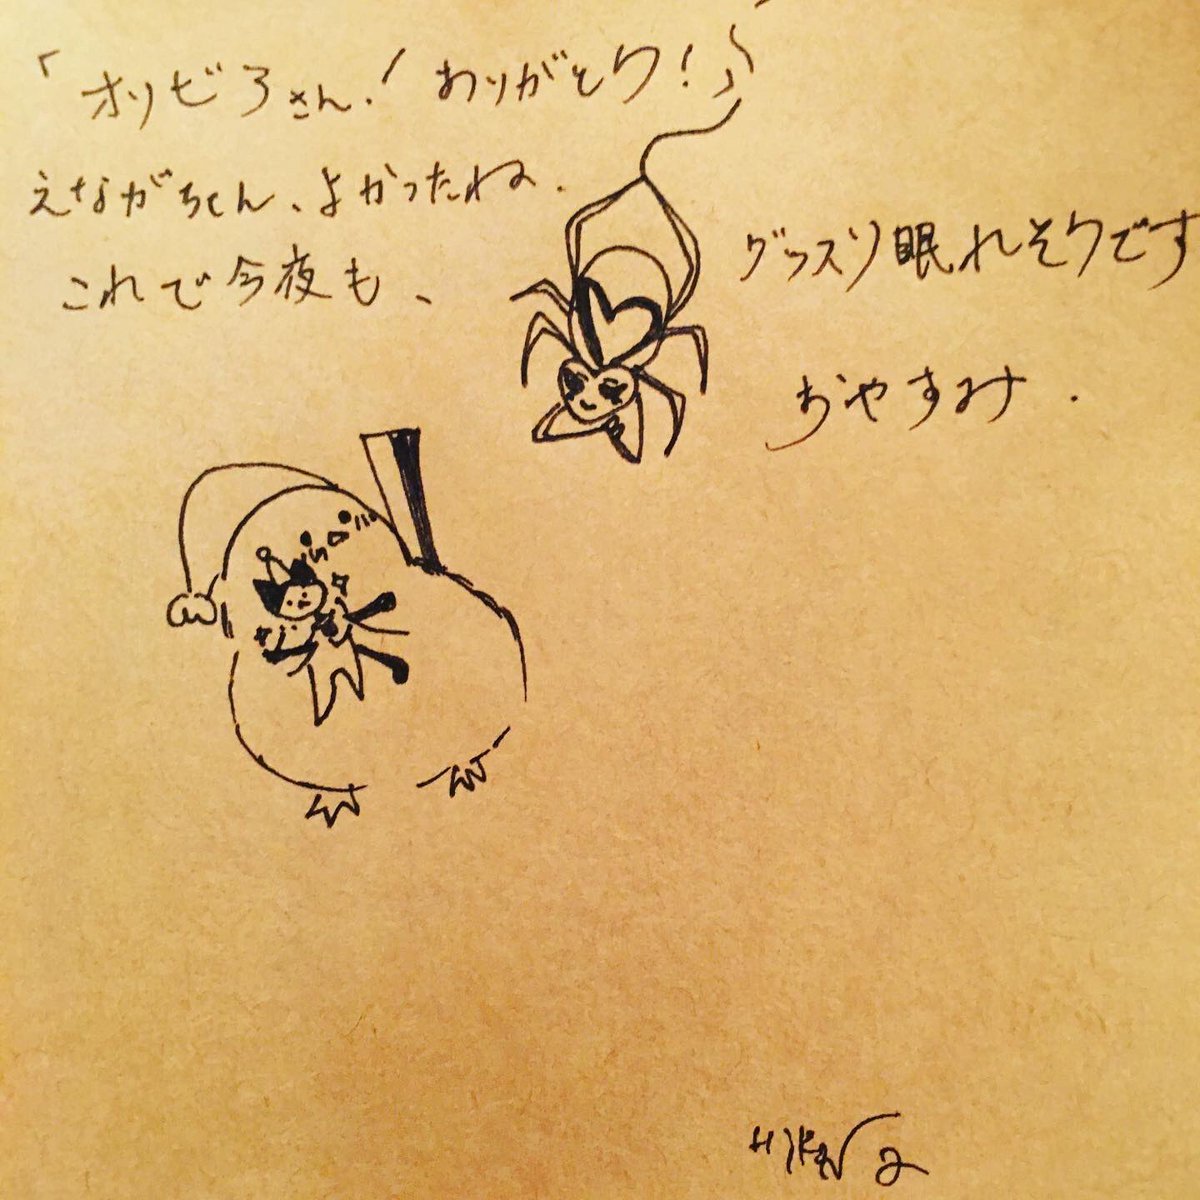 「オリビアさん！ありがとう！」
えながちゃん、よかったね.
これで今夜も、
グッスリ眠れそうです
おやすみ.